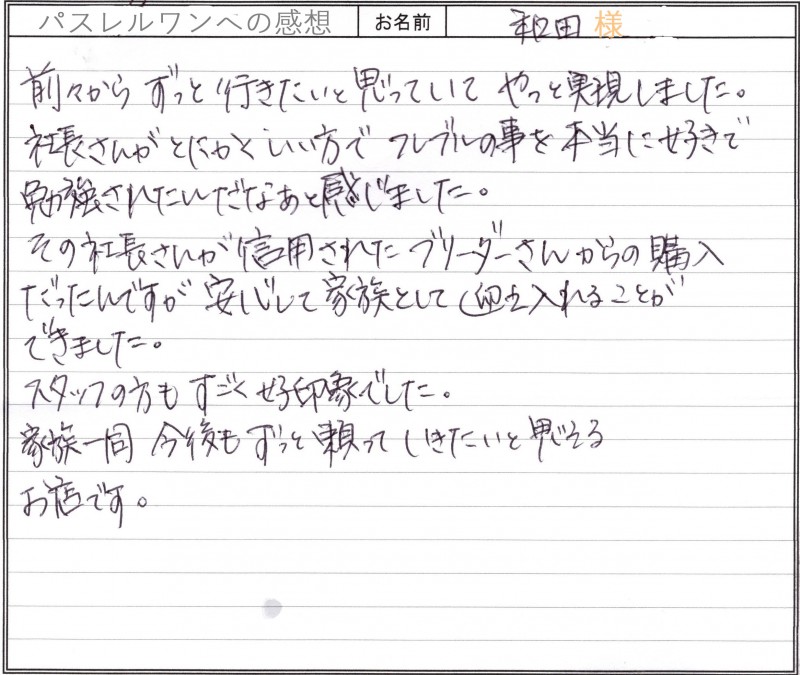 パスレルワンへの感想 お名前 和田 様
前々から ずっと 行きたいと 思っていて やっと実現しました。
社長さんが とにかく いい方で フレブルの事を 本当に好きで
勉強されたんだなあと感じました。
その社長さんが 信用された ブリーダーさんからの購入
だったんですが 安心して 家族として 迎え入れることが
できました。
スタッフの方も すごく 好印象でした。
家族一同 今後も ずっと 頼って いきたいと 思える
お店です。